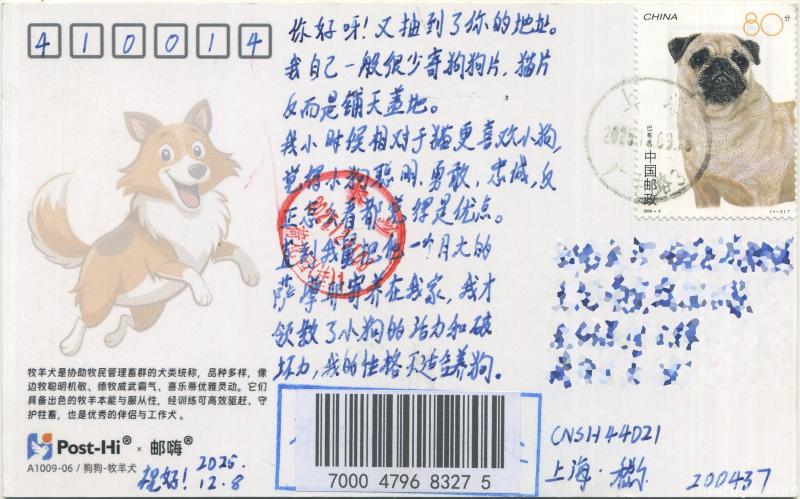 410014
你好呀!又抽到了你的地址。
我自己一般很少寄狗狗片,猫片
反而是铺天盖地。
我小时候相对于猫更喜欢小狗,
觉得小狗聪明,勇敢,忠诚,反
正怎么看都觉得是优点。
直到我舅把他一个月大的
萨摩耶寄养在我家,我才
领教了小狗的活力和破
坏力,我的性格不适合养狗。
CHINA 80分
巴哥犬
中国邮政
牧羊犬是协助牧民管理畜群的犬类统称,品种多样,像
边牧聪明机敬、德牧威武霸气、喜乐蒂优雅灵动。它们
具备出色的牧羊本能与服从性,经训练可高效驱赶、守
护牲畜,也是优秀的伴侣与工作犬。
Post-Hi® × 邮嗨®
A1009-06 / 狗狗-牧羊犬
祝好! 2025.
12.8
7000 4796 8327 5
CNSH44021
上海· 200437